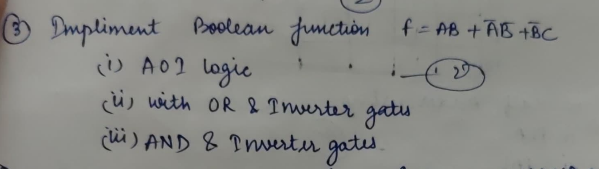 ③ Impliment Boolean function f = AB + A̅B̅ + B̅C
(i) AOI logic
(ii) with OR & Inverter gates
(iii) AND & Inverter gates.